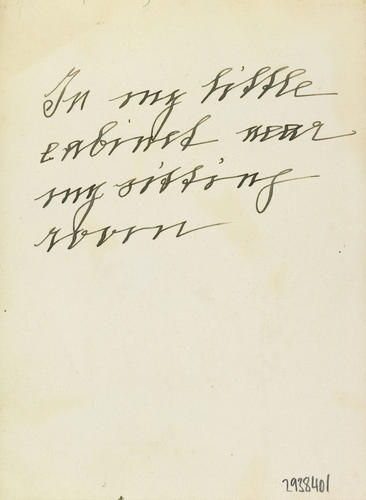 In my little
cabinet near
my sitting
room
293840/